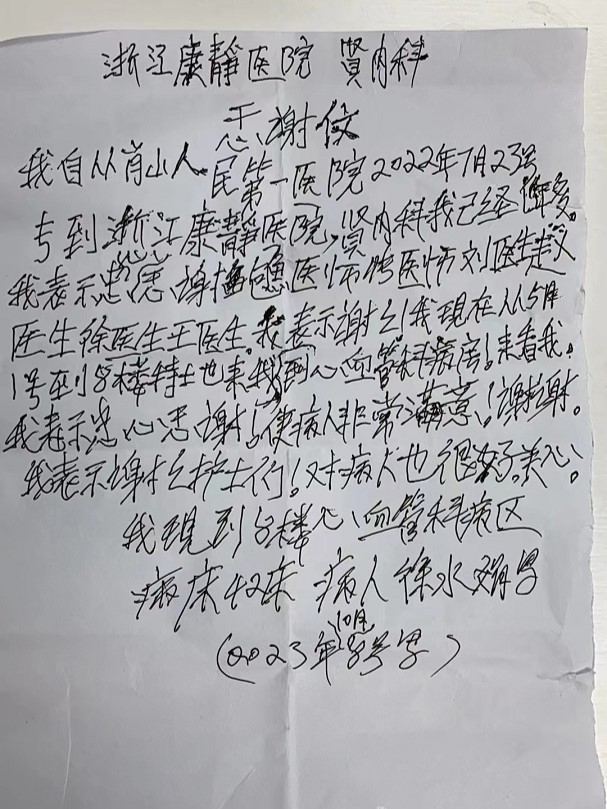 浙江康静医院 肾内科
感谢信
我自从肖山人民第一医院2022年7月23号
专到浙江康静医院,肾内科我已经 年多。
我表示忠心感谢 医师 医师刘医生赵
医生徐医生王医生。我表示谢謝!我现在从5月
1号到8楼特士也来我到心血管科病房!来看我。
我表示忠心感谢!使病人非常满意!谢谢。
我表示谢谢护士们!对病人也很好关心!
我现到8楼心血管科病区
病床42床 病人徐水娟写
(2023年10月8号写)